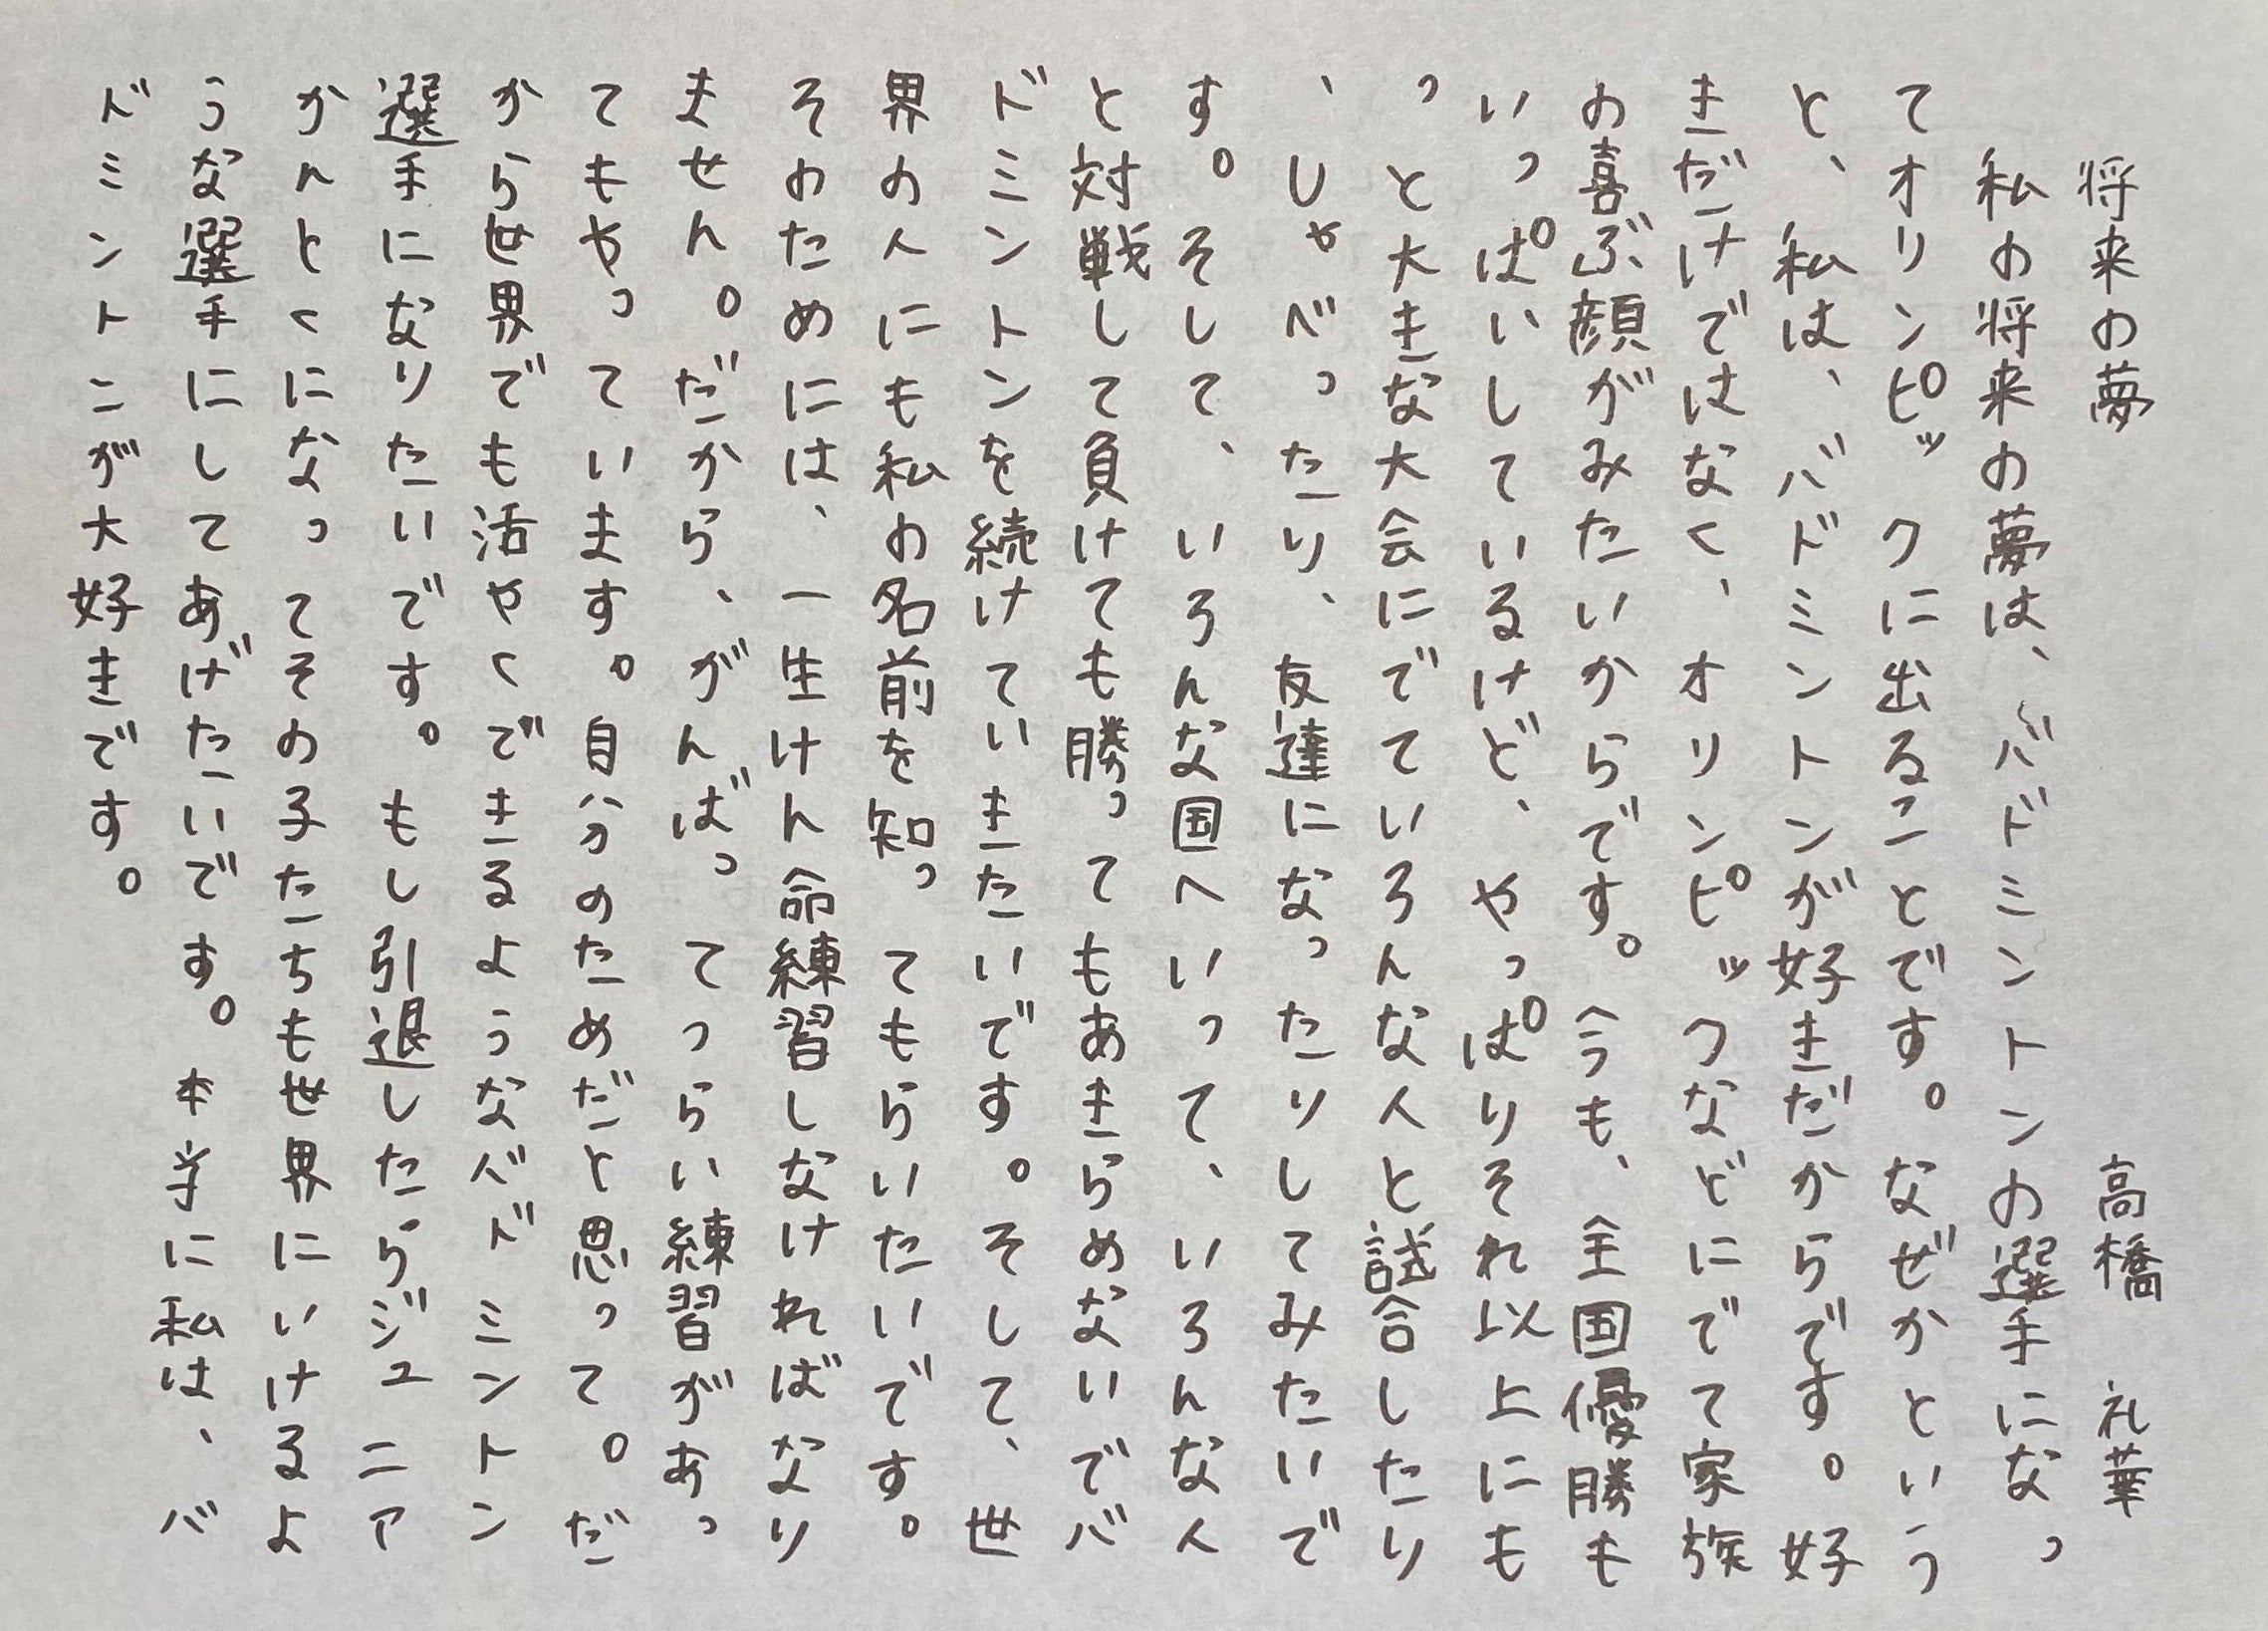 将来の夢　高橋　礼華
私の将来の夢は、バドミントンの選手になっ
てオリンピックに出ることです。なぜかという
と、私は、バドミントンが好きだからです。好
きだけではなく、オリンピックなどにでて家族
の喜ぶ顔がみたいからです。今も、全国優勝も
いっぱいしているけど、やっぱりそれ以上にも
っと大きな大会にでていろんな人と試合したり
、しゃべったり、友達になったりしてみたいで
す。そして、いろんな国へいって、いろんな人
と対戦して負けても勝ってもあきらめないでバ
ドミントンを続けていきたいです。そして、世
界の人にも私の名前を知ってもらいたいです。
そのためには、一生けん命練習しなければなり
ません。だから、がんばってつらい練習があっ
てもやっています。自分のためだと思って。だ
から世界でも活やくできるようなバドミントン
選手になりたいです。もし引退したらジュニア
かんとくになってその子たちも世界にいけるよ
うな選手にしてあげたいです。本当に私は、バ
ドミントンが大好きです。